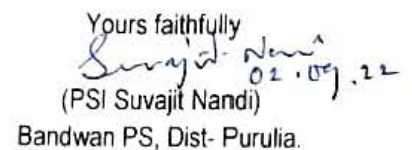 Yours faithfully
Suvajit Nandi
02.09.22
(PSI Suvajit Nandi)
Bandwan PS, Dist- Purulia.